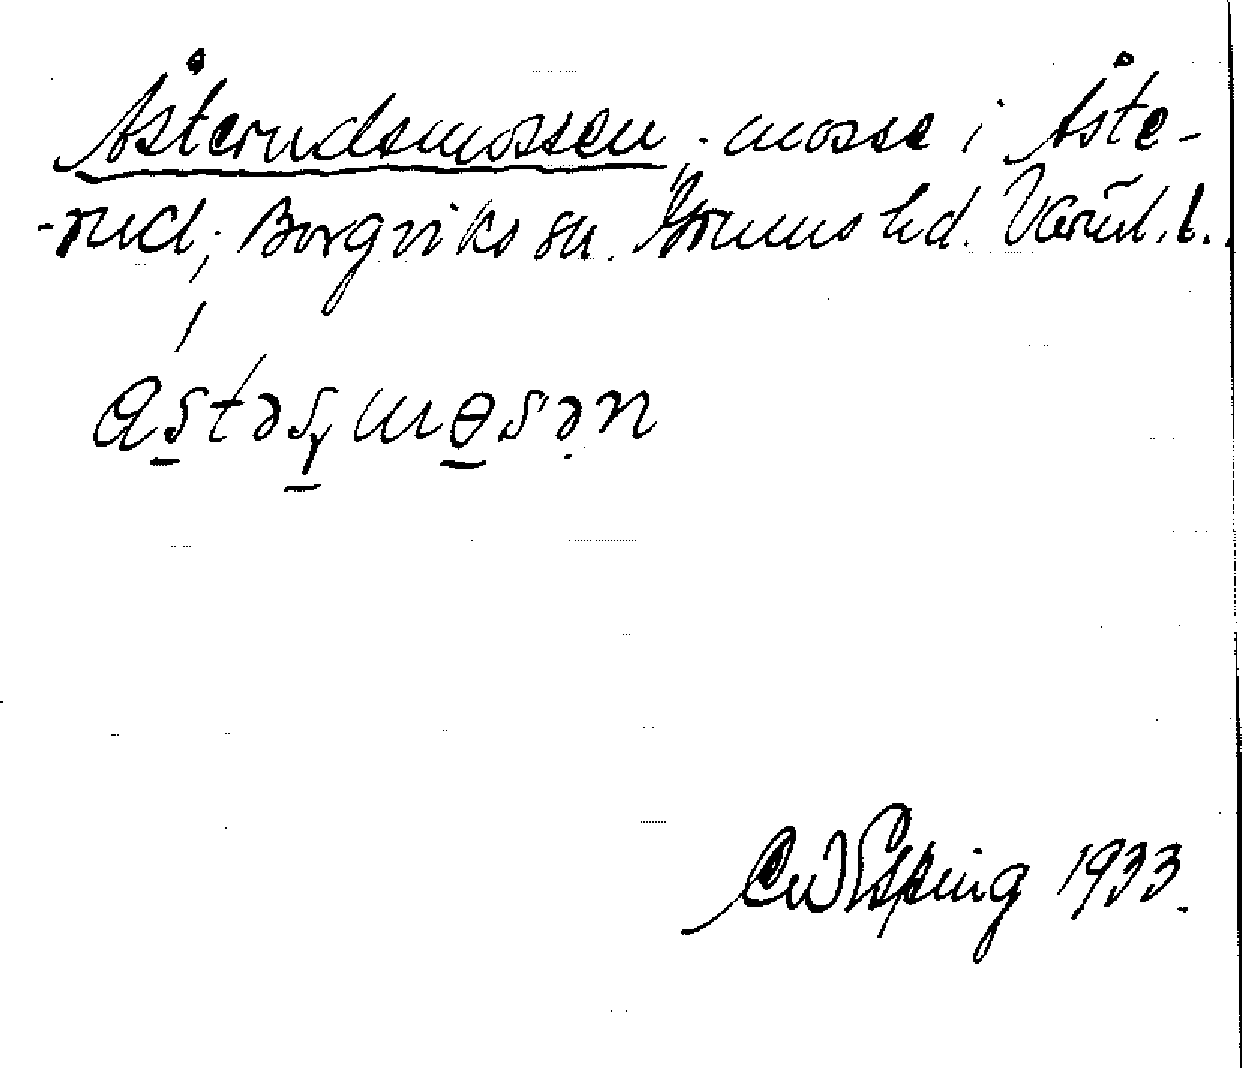 Åsterudsmossen - mosse i Åste-
-rud, Borgviks sn. Grums hd. Värml. l.
C W Esping 1933.